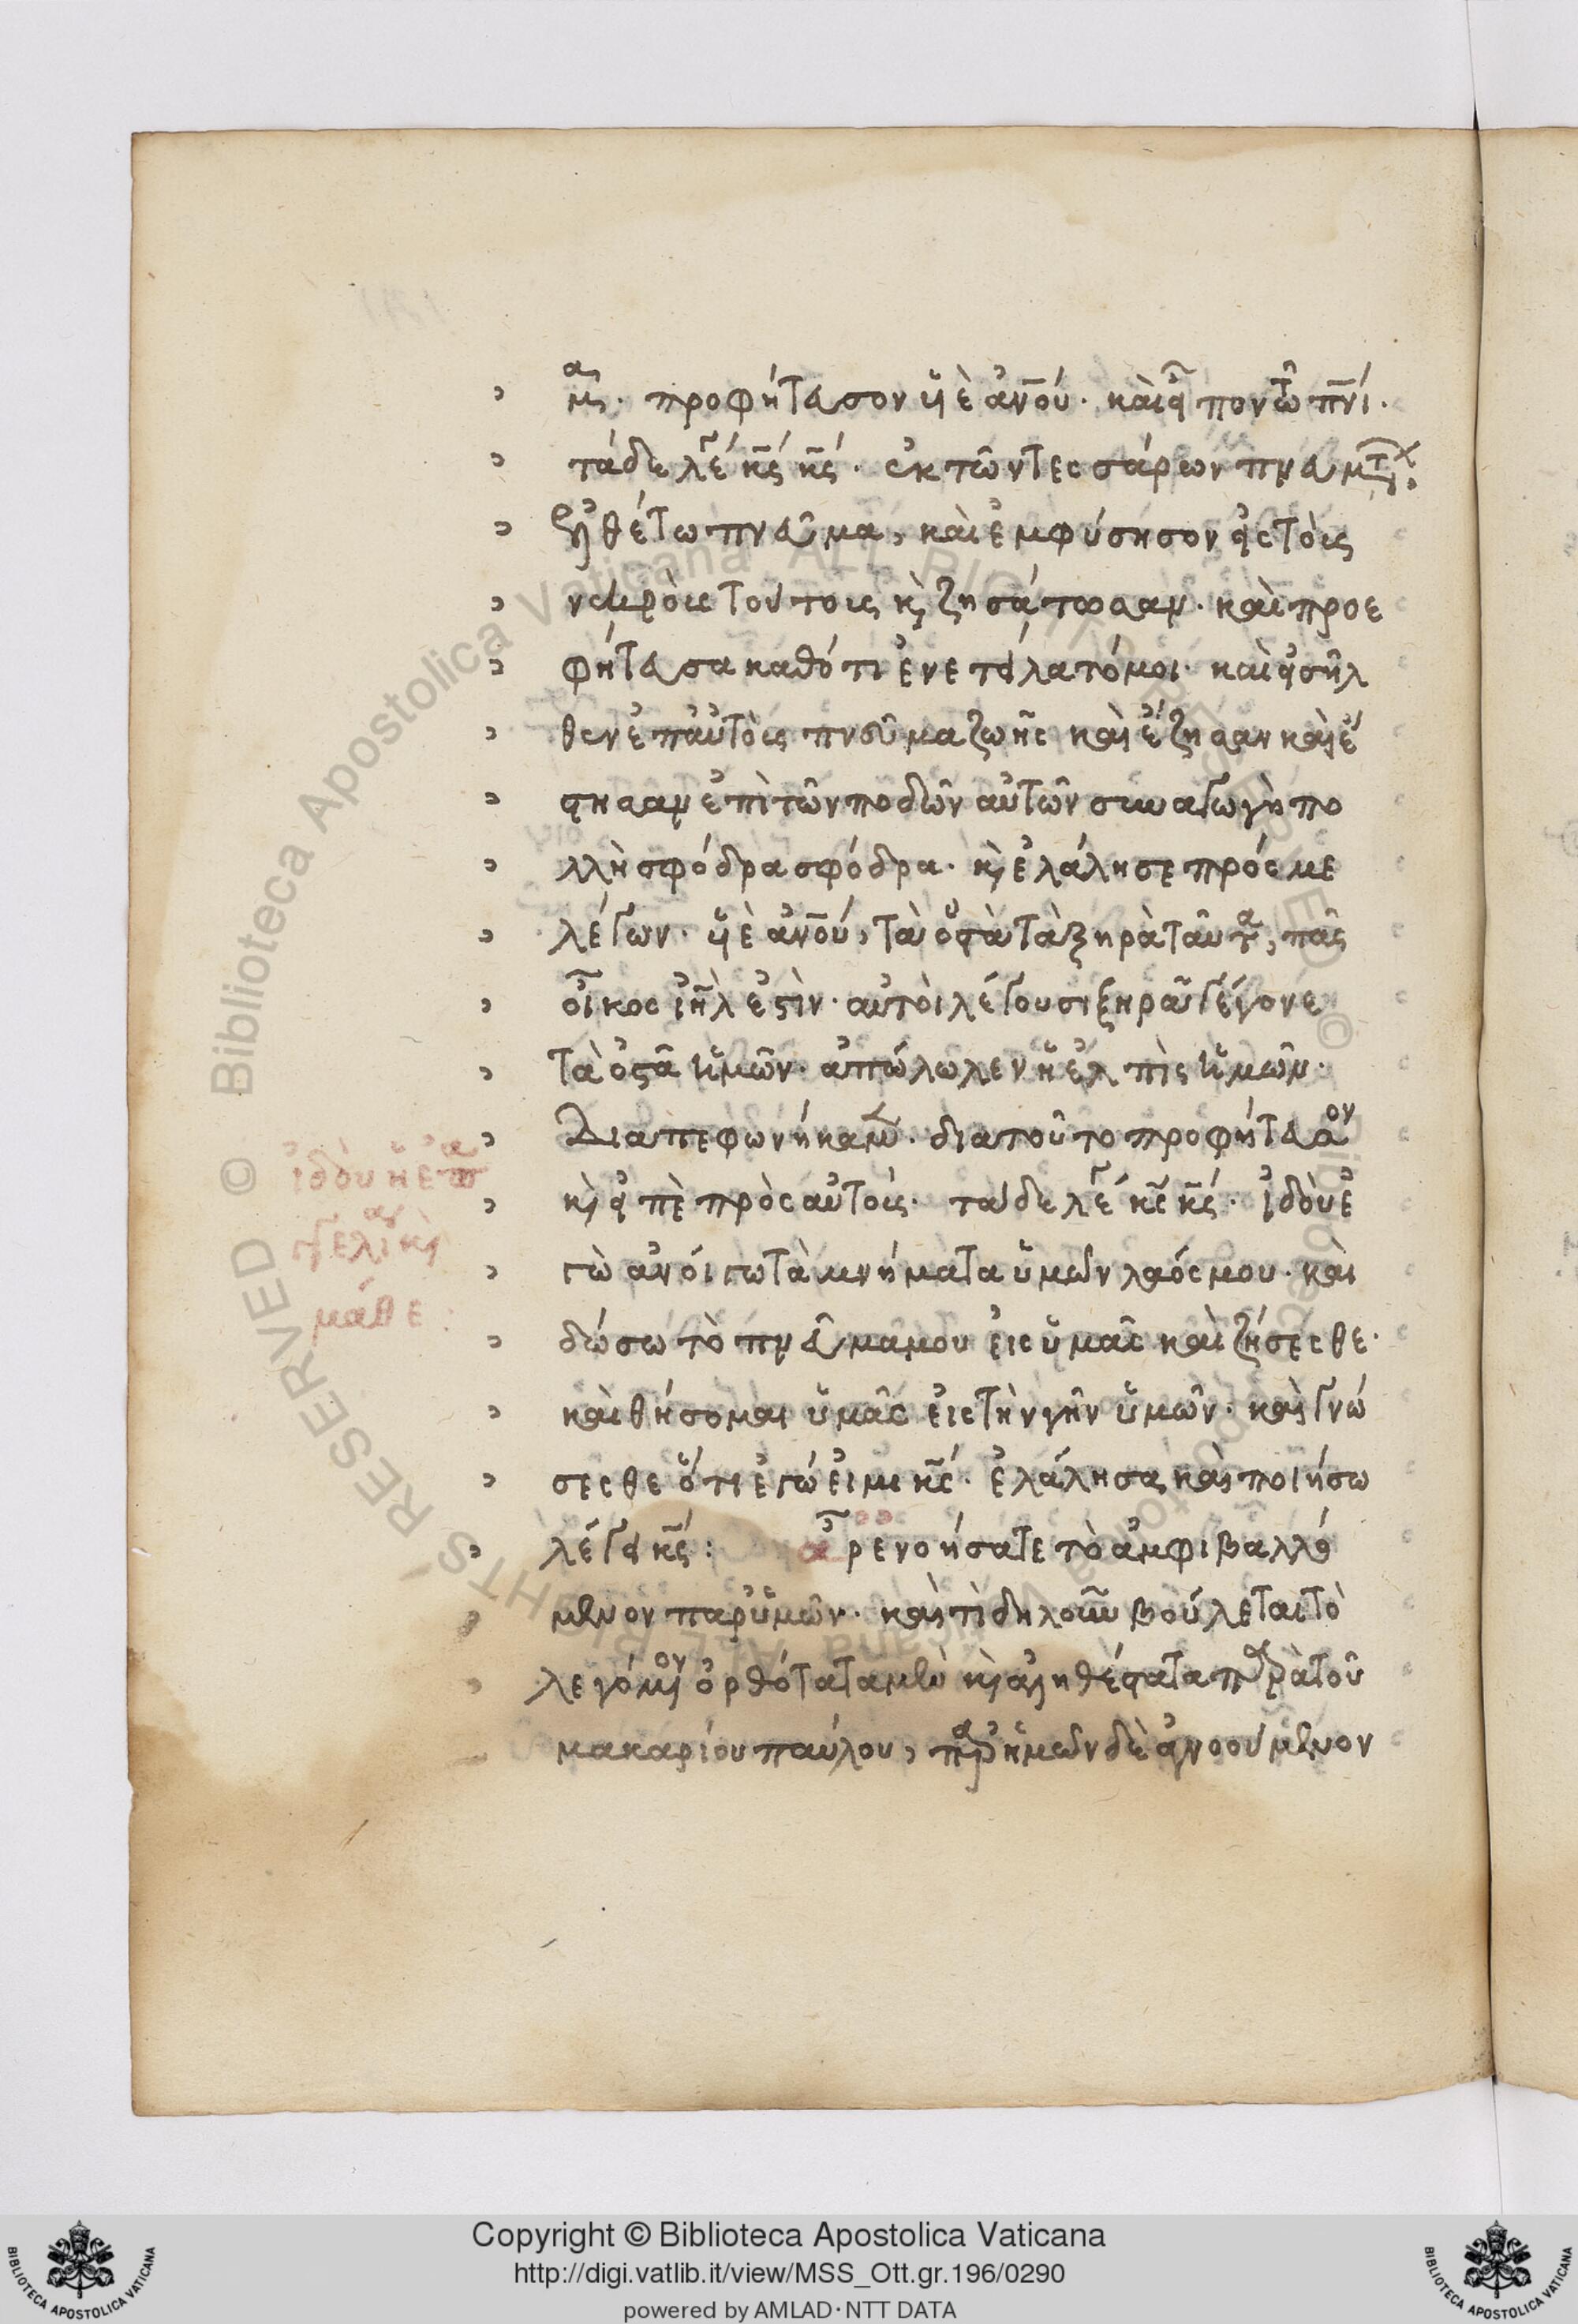 μα. προφήτευσον υἱὲ ἀνου. καὶ εἶπον τῶ πνι.
τάδε λέγει κς κς. ἐκ τῶν τεσσάρων πνευμάτων
ἐλθέτω πνεῦμα, καὶ ἐμφύσησον εἰς τοὺς
νεκροὺς τούτους κ ζησάτωσαν. καὶ προε
φήτευσα καθότι ἐνετείλατό μοι. καὶ εἰσῆλ
θεν ἐπ αὐτοῖς πνεῦμα ζωῆς καὶ ἔζησαν καὶ ἔ
στησαν ἐπὶ τῶν ποδῶν αὐτῶν συναγωγὴ πο
λλὴ σφόδρα σφόδρα. κ ἐλάλησε πρός με
λέγων. υἱὲ ἀνου, τὰ ὀστὰ τὰ ξηρὰ ταῦτα, πᾶς
οἶκος ιηλ ἐστὶν. αὐτοὶ λέγουσι ξηρὰ γέγονε
τὰ ὀστᾶ ἡμῶν. ἀπώλωλεν ἡ ἐλπὶς ἡμῶν.
διαπεφωνήκαμεν. διατοῦτο προφήτευσον
κ εἰπὲ πρὸς αὐτούς. τάδε λέγει κς κς. ἰδοὺ ἐ
γὼ ἀνοίγω τὰ μνήματα ὑμῶν λαός μου. καὶ
δώσω τὸ πνεῦμα μου εἰς ὑμᾶς καὶ ζήσεσθε.
καὶ θήσομαι ὑμᾶς εἰς τὴν γῆν ὑμῶν. καὶ γνώ
σεσθε ὅτι ἐγώ εἰμι κς. ἐλάλησα καὶ ποιήσω
λέγει κς: ἆρ ἐνοήσατε τὸ ἀμφιβαλλό
μενον παρ ὑμῶν. καὶ τὶ δηλοῦν βούλεται τὸ
λεγόμενον ὀρθότατα μὲν κ ἀληθέστατα παρὰ τοῦ
μακαρίου παύλου, παρ ἡμῶν δὲ ἀγνοούμενον
μάθε:
Copyright © Biblioteca Apostolica Vaticana
http://digi.vatlib.it/view/MSS_Ott.gr.196/0290
powered by AMLAD·NTT DATA